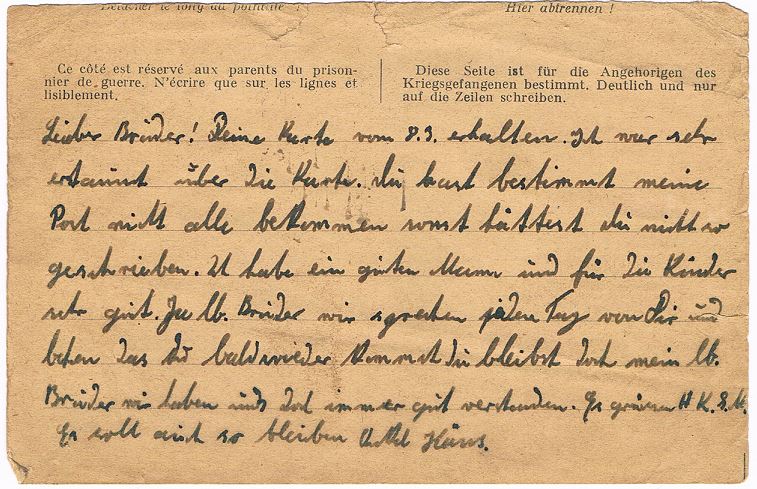 Détacher le long du pointillé !
Hier abtrennen !
Ce côté est réservé aux parents du prison-
nier de guerre. N'écrire que sur les lignes et
lisiblement.
Diese Seite ist für die Angehörigen des
Kriegsgefangenen bestimmt. Deutlich und nur
auf die Zeilen schreiben.
Lieber Brüder! Deine Karte vom 8.3. erhalten. Ich war sehr
erstaunt über die Karte. Du hast bestimmt meine
Post nicht alle bekommen sonst hättest du nicht so
geschrieben. Ich habe ein guten Mann und für die Kinder
sehr gut. Ja lb. Bruder wir sprechen jeden Tag von Dir und
beten das du bald wieder kommst du bleibst doch mein lb.
Bruder wir haben uns doch immer gut verstanden. Es grüssen H. K. S. M.
Es soll auch so bleiben Hans.